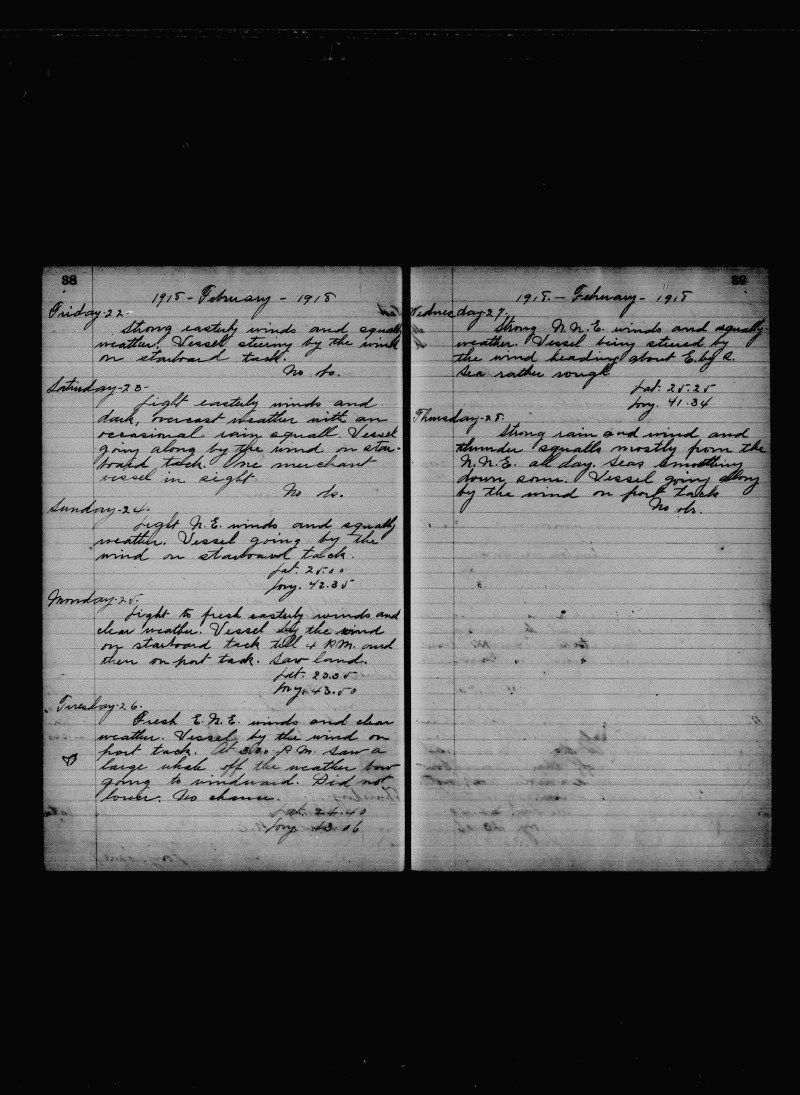 88
1918 - February - 1918
Friday-22.
Strong easterly winds and squally
weather. Vessel steering by the wind
on starboard tack.
No ob.
Saturday-23-
Light easterly winds and
dark, overcast weather with an
occasional rain squall. Vessel
going along by the wind on star-
board tack. One merchant
vessel in sight
No ob.
Sunday-24.
Light N.E. winds and squally
weather. Vessel going by the
wind on starboard tack.
Lat. 25.00
Long. 42.35
Monday-25.
Light to fresh easterly winds and
clear weather. Vessel by the wind
on starboard tack till 4 P.M. and
then on port tack. Saw land.
Lat. 23.35
Long. 43.50
Tuesday-26.
Fresh E.N.E. winds and clear
weather. Vessel by the wind on
port tack. At 3.30 P.M. saw a
large whale off the weather bow
going to windward. Did not
lower. No chance.
Lat. 24.40
Long 43 06
89
1918. - February - 1918
Wednesday-27.
Strong N.N.E. winds and squally
weather. Vessel being stered by
the wind heading about E. by S.
Sea rather rough
Lat. 25.25
Long. 41.34
Thursday-28.
Strong rain and wind and
thunder squalls mostly from the
N.N.E. all day. Seas smoothing
down some. Vessel going along
by the wind on port tack
No ob.